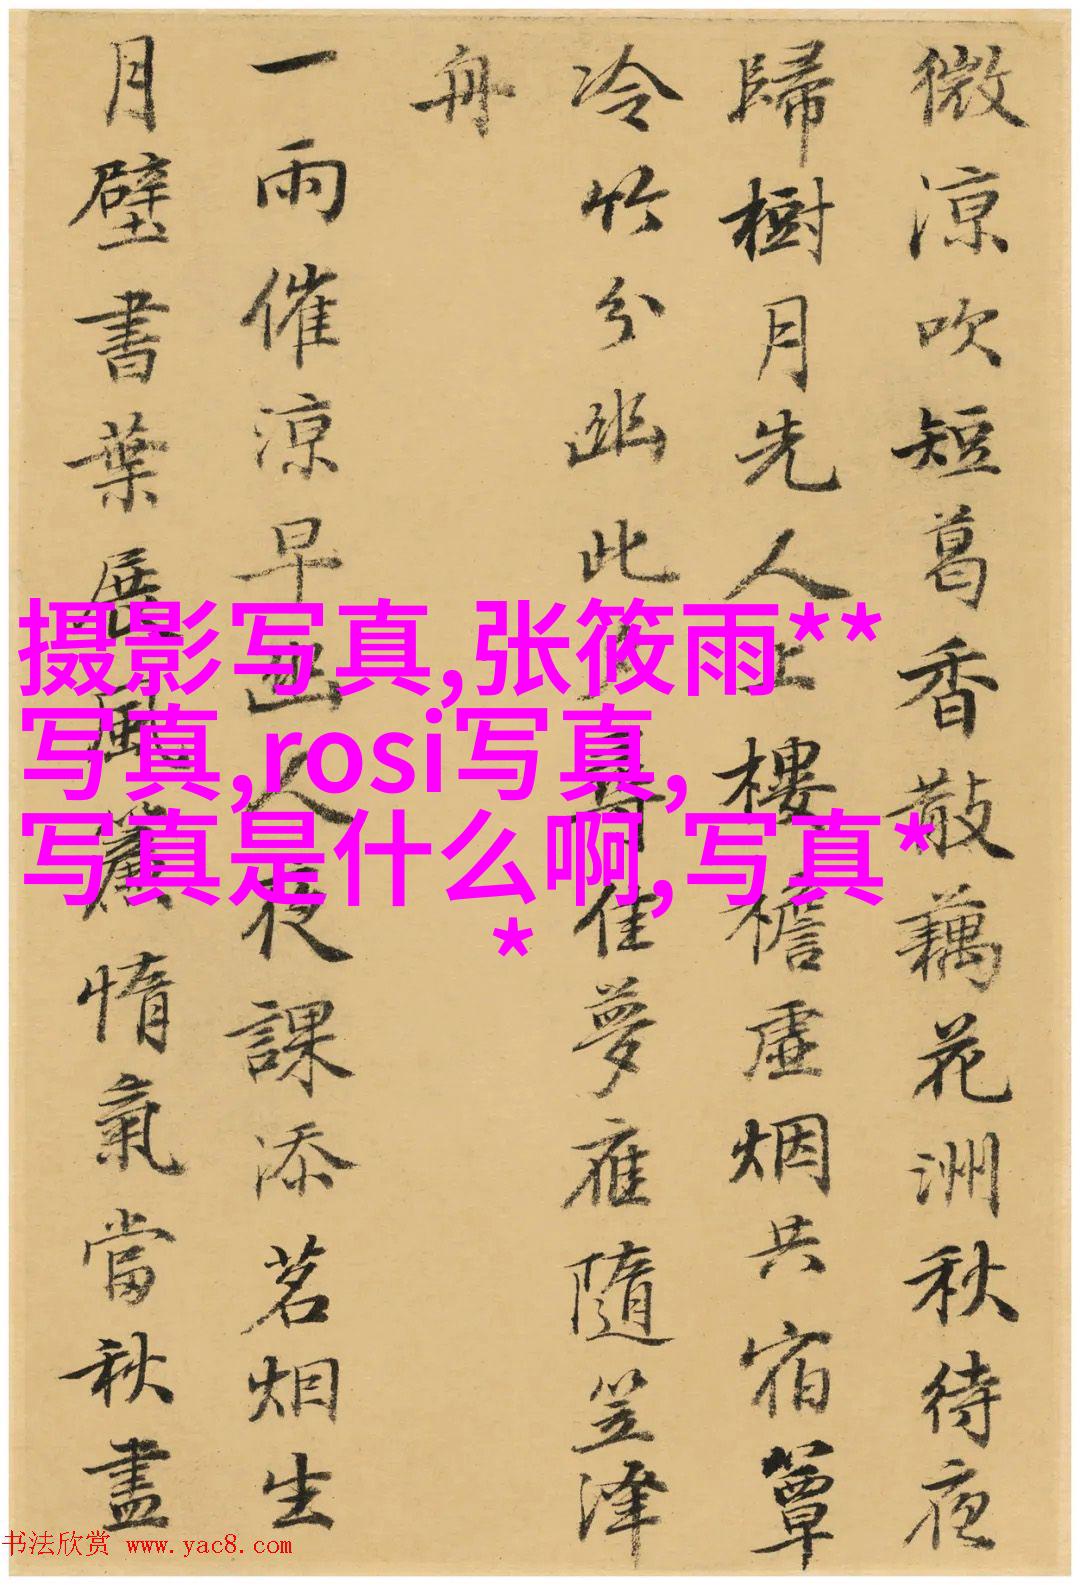 微涼吹短葛香散藕花洲秋待夜
歸樹月先人上樓檐虛烟共宿簟
冷竹分幽此佳夢應隨笠澤
舟
一雨催涼早幽人夜課添茗烟生
月壁書葉展風簾惰氣當秋盡
摄影写真,张筱雨**
写真,rosi写真,
写真是什么啊,写真*
*
书法欣赏 www.yac8.com